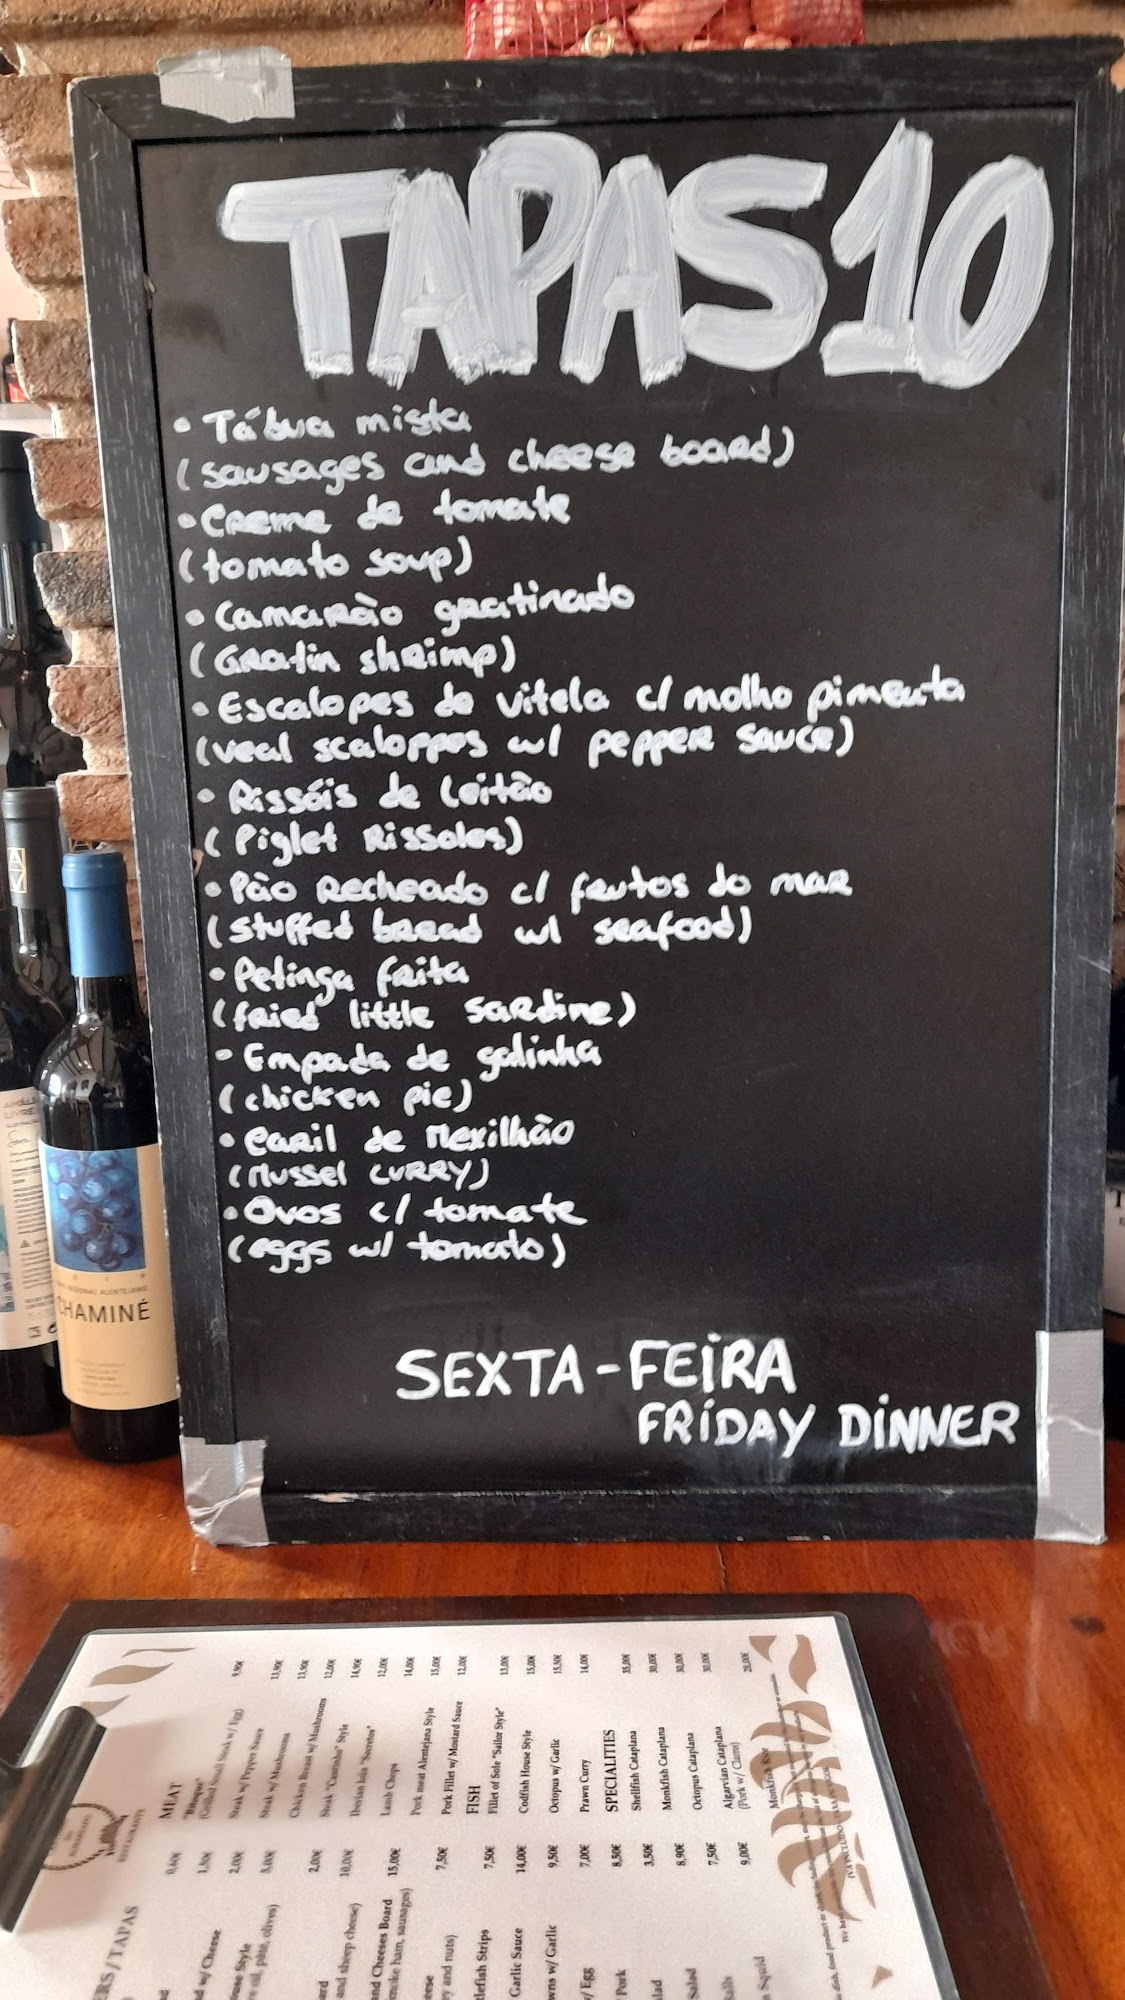 TAPAS 10
• Tábua mista
(sausages and cheese board)
• Creme de tomate
(tomato soup)
• Camarão gratinado
(Gratin shrimp)
• Escalopes de vitela c/ molho pimenta
(veal scaloppes w/ pepper sauce)
• Rissóis de leitão
(Piglet Rissoles)
• Pão Recheado c/ frutos do mar
(stuffed bread w/ seafood)
• Petinga frita
(fried little sardine)
• Empada de galinha
(chicken pie)
• Caril de Mexilhão
(Mussel CURRY)
• Ovos c/ tomate
(eggs w/ tomato)
SEXTA-FEIRA
FRIDAY DINNER
REGIONAL ALENTEJANO
CHAMINÉ
MEAT
"Bitoque" 9,90€
(Grilled Small Steak w/ Egg)
Steak w/ Pepper Sauce 13,90€
Steak w/ Mushrooms 13,90€
Chicken Breast w/ Mushrooms 12,00€
Steak "Caminho" Style 14,90€
Iberian loin "Secretos" 12,00€
Lamb Chops 14,00€
Pork meat Alentejana Style 15,00€
Pork Fillet w/ Mustard Sauce 12,00€
FISH
Fillet of Sole "Sailor Style" 13,00€
Codfish House Style 15,00€
Octopus w/ Garlic 15,50€
Prawn Curry 14,00€
SPECIALITIES
Shellfish Cataplana 35,00€
Monkfish Cataplana 30,00€
Octopus Cataplana 30,00€
Algarvian Cataplana 30,00€
(Pork w/ Clams)
Monkfish Rice 28,00€
ERS/TAPAS
0,60€
w/ Cheese 1,80€
ouse Style 2,00€
oil, pâté, olives) 3,00€
ard 2,00€
and sheep cheese) 10,00€
and Cheeses Board 15,00€
moke ham, sausages)
eese 7,50€
y and nuts)
tlefish Strips 7,50€
Garlic Sauce 14,00€
wns w/ Garlic 9,50€
w/ Egg 7,00€
Pork 8,50€
lad 3,50€
Salad 8,90€
alls 7,50€
n Squid 9,00€